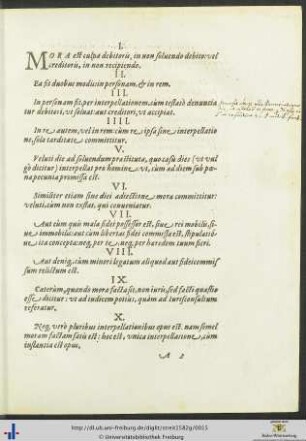 I.
MORA est culpa debitoris, in non soluendo debito: vel
creditoris, in non recipiendo.
II.
Ea fit duobus modis: in personam, & in rem.
III.
In personam fit per interpellationem, cum testatò denuntia
tur debitori, vt soluat: aut creditori, vt accipiat.
IIII.
In re autem, vel in rem: cum re ipsa sine interpellatio
ne, sola tarditate committitur.
V.
Veluti die ad soluendum præstituta, quo casu dies (vt vul
gò dicitur) interpellat pro homine: vt, cum ad diem sub pœ
na pecunia promissa est.
VI.
Similiter etiam sine diei adiectione mora committitur:
veluti, cum non exstat, qui conueniatur.
VII.
Aut cum quis mala fidei possessor est, siue rei mobilis, si
ue immobilis: aut cum libertas fidei commissa est, stipulatió
ue ita concepta: neq, per te, neq, per hæredem tuum fieri.
VIII.
Aut deniq, cum minori legatum aliquod aut fideicommis
sum relictum est.
IX.
Cæterùm, quando mora facta sit, non iuris, sed facti quæstio
esse dicitur: vt ad iudicem potius, quàm ad iurisconsultum
referatur.
X.
Neq, verò pluribus interpellationibus opus est. nam semel
moram factam satis est: hoc est, vnica interpellatione, cum
instantia est opus.
A 2
http://dl.ub.uni-freiburg.de/diglit/streit1582g/0013
© Universitätsbibliothek Freiburg
Baden-Württemberg